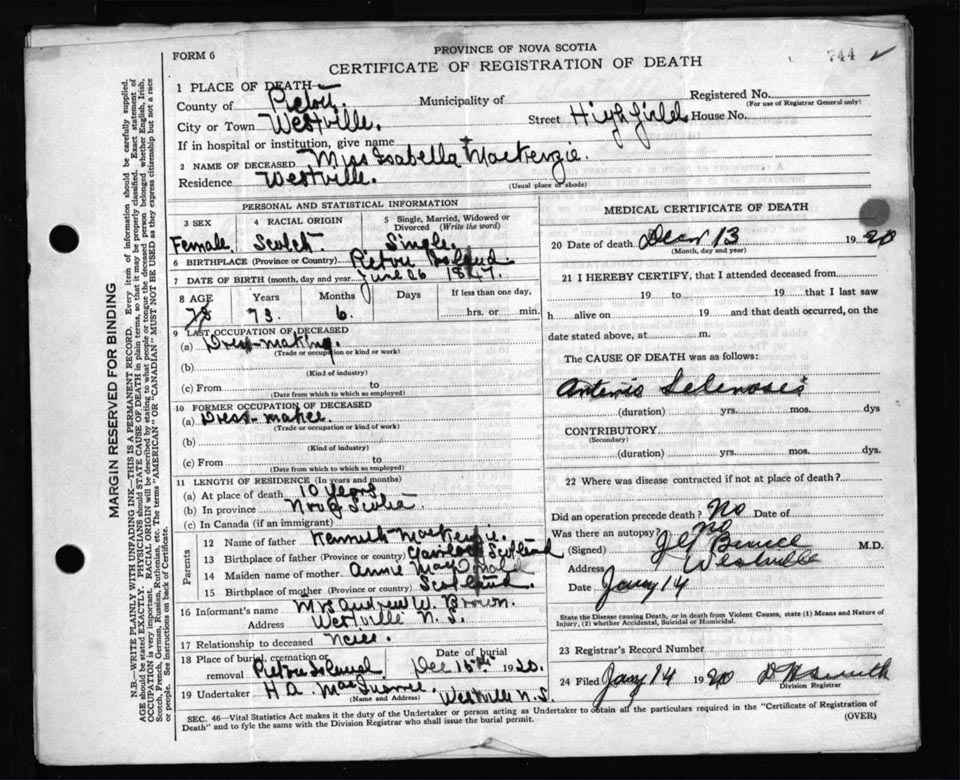 FORM 6
PROVINCE OF NOVA SCOTIA
744 ✓
CERTIFICATE OF REGISTRATION OF DEATH
1 PLACE OF DEATH—
Registered No.
(For use of Registrar General only)
County of Pictou. Municipality of
City or Town Westville. Street Highfield House No.
If in hospital or institution, give name
2 NAME OF DECEASED Miss Isabella MacKenzie.
Residence Westville.
(Usual place of abode)
PERSONAL AND STATISTICAL INFORMATION
3 SEX 4 RACIAL ORIGIN 5 Single, Married, Widowed or Divorced (Write the word)
Female Scotch Single.
6 BIRTHPLACE (Province or Country) Pictou Island
7 DATE OF BIRTH (month, day and year) June 26 1847.
8 AGE Years Months Days If less than one day,
73. 6. hrs. or min.
9 LAST OCCUPATION OF DECEASED
(a) Dress-making.
(Trade or occupation or kind or work)
(b)
(Kind of industry)
(c) From to
(Date from which to which so employed)
10 FORMER OCCUPATION OF DECEASED
(a) Dress-maker
(Trade or occupation or kind of work)
(b)
(Kind of industry)
(c) From to
(Date from which to which so employed)
11 LENGTH OF RESIDENCE (In years and months)
(a) At place of death 10 years
(b) In province Nova Scotia
(c) In Canada (if an immigrant)
Parents
12 Name of father Kenneth MacKenzie.
13 Birthplace of father (Province or country) Gairloch Scotland
14 Maiden name of mother Annie MacDonald
15 Birthplace of mother (Province or country) Scotland.
16 Informant's name Mrs Andrew W. Brown.
Address Westville N. S.
17 Relationship to deceased neice.
18 Place of burial, cremation or removal Pictou Island Date of burial Dec 15th 1920.
19 Undertaker H A Westville N. S.
(Name and Address)
MEDICAL CERTIFICATE OF DEATH
20 Date of death Decr 13 1920
(Month, day and year)
21 I HEREBY CERTIFY, that I attended deceased from
19 to 19 that I last saw
h alive on 19 and that death occurred, on the
date stated above, at m.
The CAUSE OF DEATH was as follows:
Arterio Sclerosis
(duration) yrs. mos. dys
CONTRIBUTORY
(Secondary)
(duration) yrs. mos. dys.
22 Where was disease contracted if not at place of death?
Did an operation precede death? No Date of
Was there an autopsy? No
(Signed) M.D.
Address Westville
Date Jany 14
State the Disease causing Death, or in death from Violent Causes, state (1) Means and Nature of
Injury, (2) whether Accidental, Suicidal or Homicidal.
23 Registrar's Record Number
24 Filed Jany 14 1920 Smith
Division Registrar
SEC. 46—Vital Statistics Act makes it the duty of the Undertaker or person acting as Undertaker to obtain all the particulars required in the "Certificate of Registration of
Death" and to fyle the same with the Division Registrar who shall issue the burial permit.
(OVER)
MARGIN RESERVED FOR BINDING
N.B.—WRITE PLAINLY WITH UNFADING INK—THIS IS A PERMANENT RECORD. Every item of information should be carefully supplied.
AGE should be stated EXACTLY. PHYSICIANS should STATE CAUSE OF DEATH in plain terms, so that it may be properly classified. Exact statement of
OCCUPATION is very important. RACIAL ORIGIN will be described by stating to what people or tongue the deceased person belonged whether English, Irish,
Scotch, French, German, Russian, Ruthenian, etc. The terms "AMERICAN" OR "CANADIAN" MUST NOT BE USED as they express citizenship but not a race
or people. See instructions on back of Certificate.